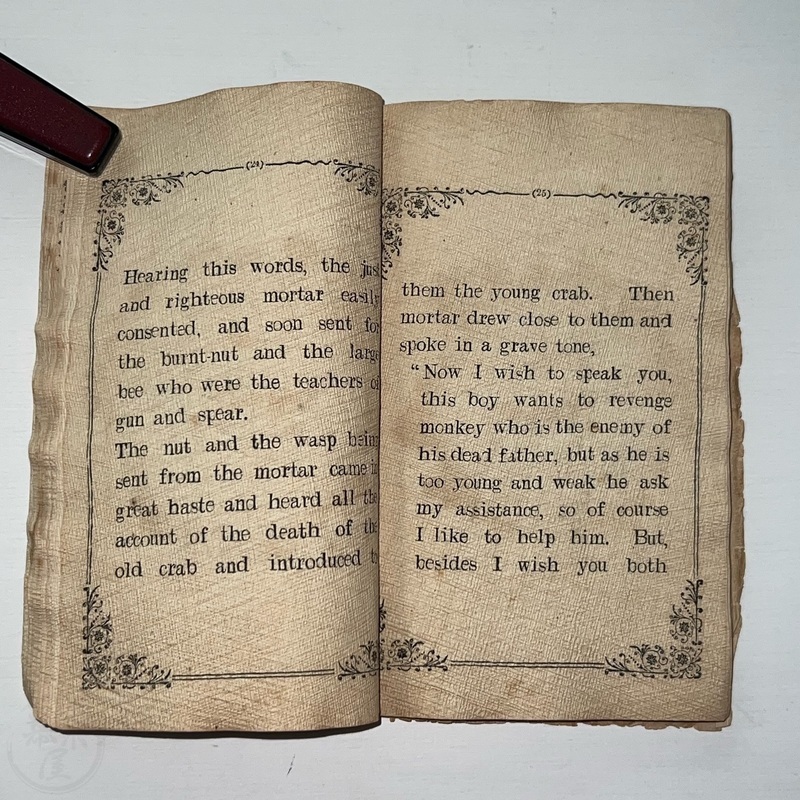 (24)
Hearing this words, the just
and righteous mortar easily
consented, and soon sent for
the burnt-nut and the large
bee who were the teachers of
gun and spear.
The nut and the wasp being
sent from the mortar came in
great haste and heard all the
account of the death of the
old crab and introduced to
(25)
them the young crab. Then
mortar drew close to them and
spoke in a grave tone,
“Now I wish to speak you,
this boy wants to revenge
monkey who is the enemy of
his dead father, but as he is
too young and weak he ask
my assistance, so of course
I like to help him. But,
besides I wish you both